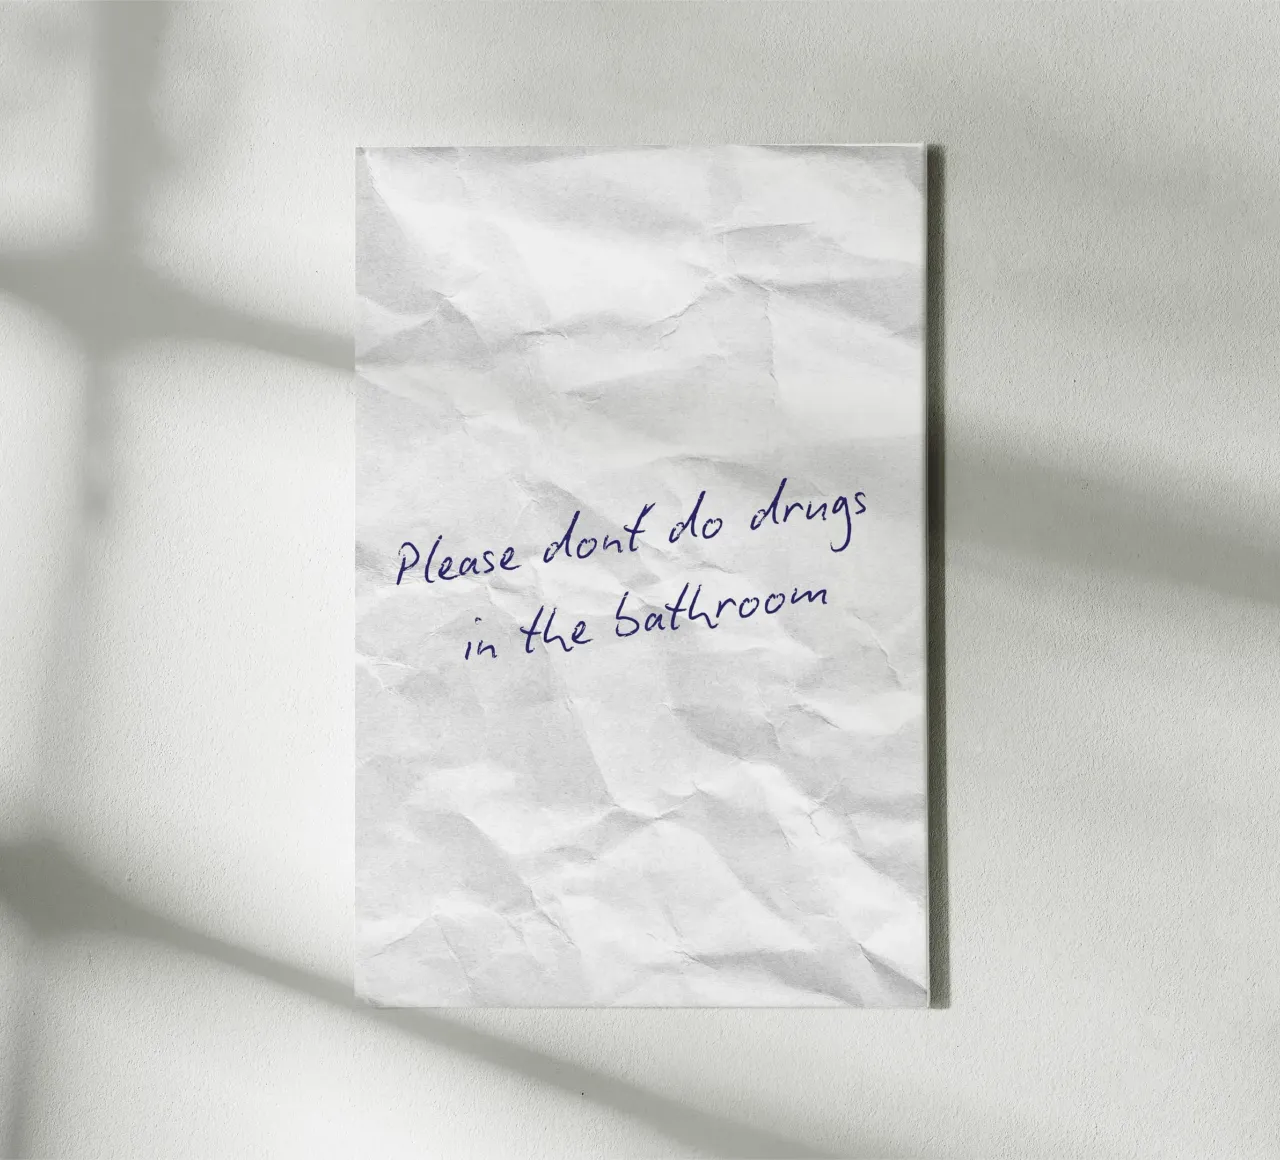 Please dont do drugs
in the bathroom